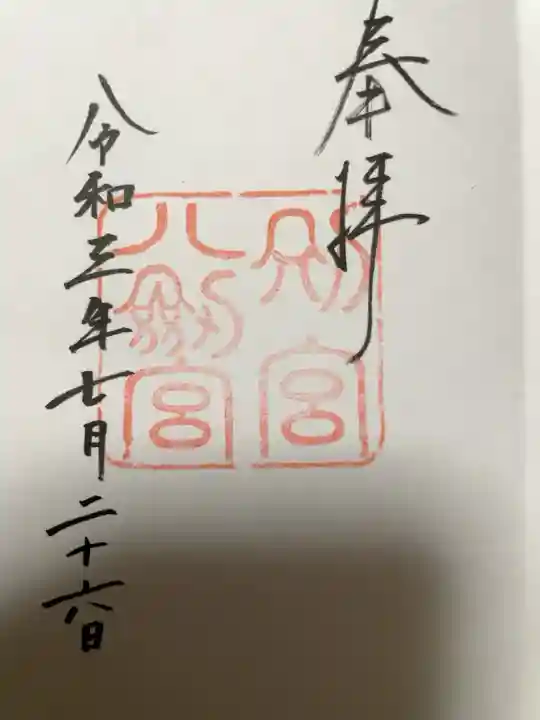 奉拝
別宮
八劍宮
令和三年七月二十六日